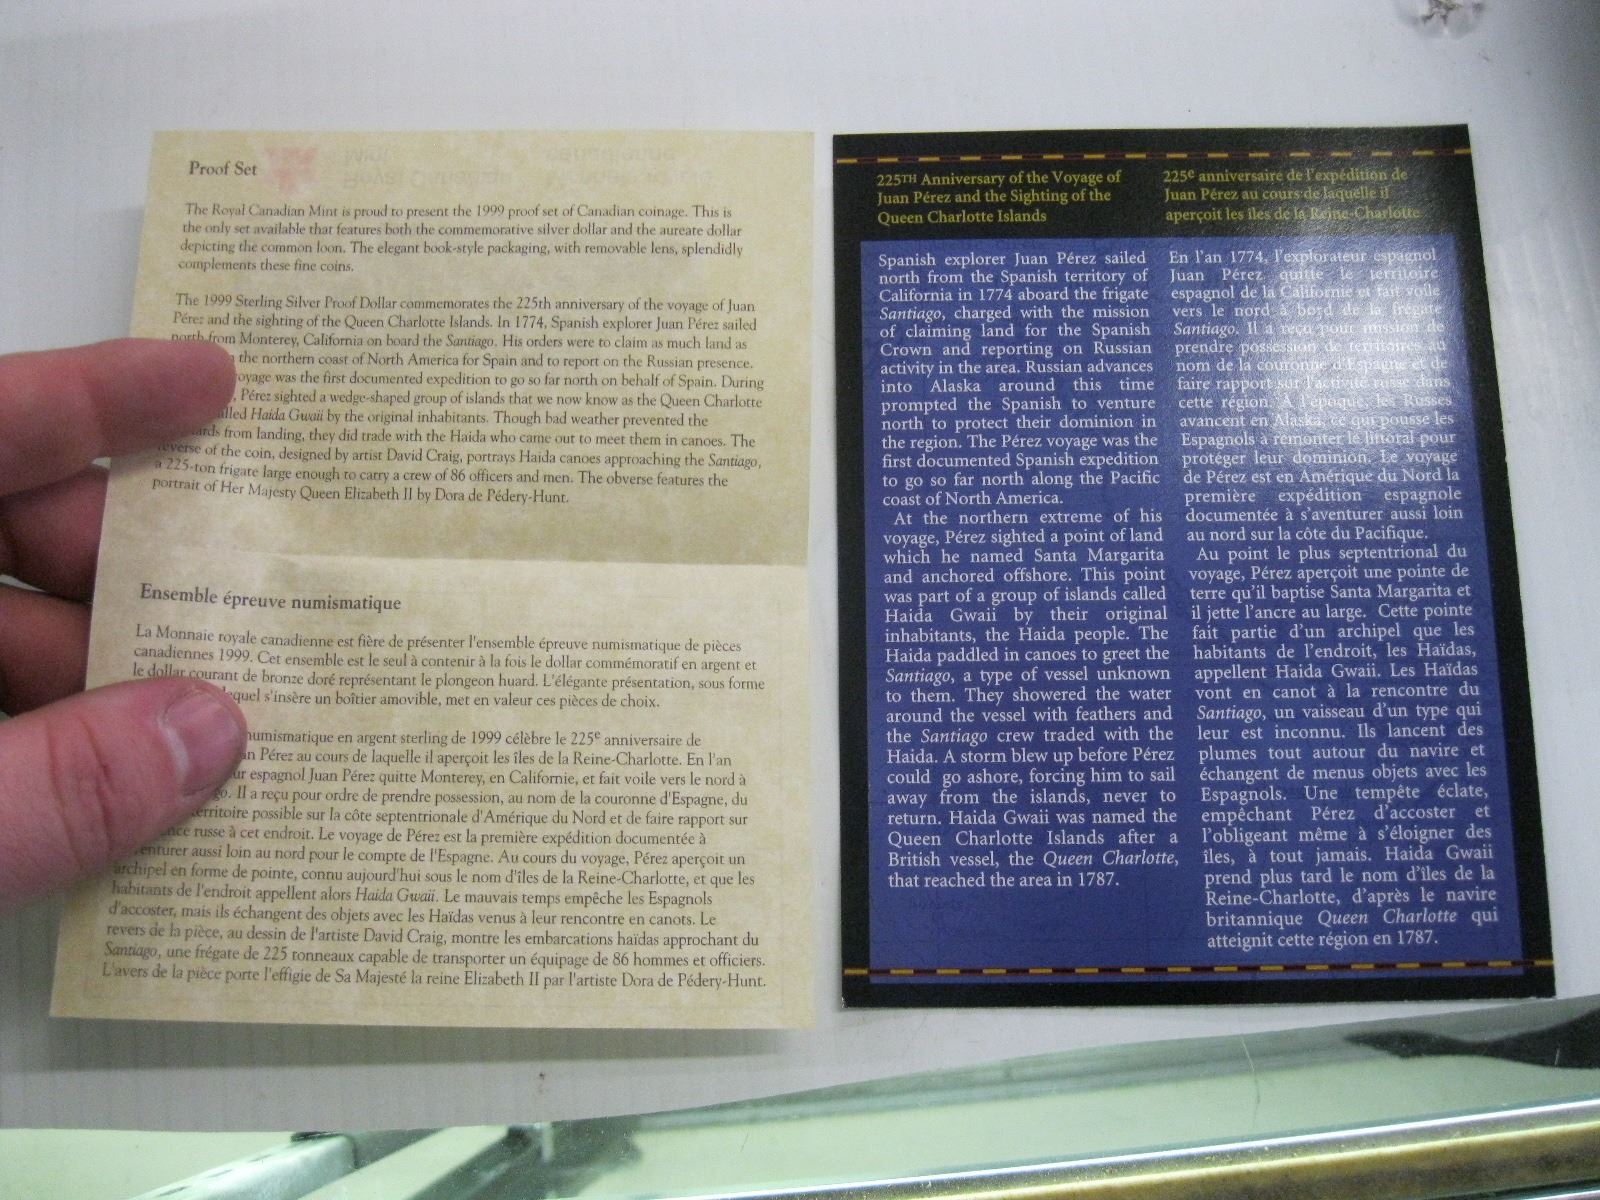 Proof Set
The Royal Canadian Mint is proud to present the 1999 proof set of Canadian coinage. This is
the only set available that features both the commemorative silver dollar and the aureate dollar
depicting the common loon. The elegant book-style packaging, with removable lens, splendidly
complements these fine coins.
The 1999 Sterling Silver Proof Dollar commemorates the 225th anniversary of the voyage of Juan
Pérez and the sighting of the Queen Charlotte Islands. In 1774, Spanish explorer Juan Pérez sailed
north from Monterey, California on board the Santiago. His orders were to claim as much land as
the northern coast of North America for Spain and to report on the Russian presence.
oyage was the first documented expedition to go so far north on behalf of Spain. During
, Pérez sighted a wedge-shaped group of islands that we now know as the Queen Charlotte
lled Haida Gwaii by the original inhabitants. Though bad weather prevented the
ards from landing, they did trade with the Haida who came out to meet them in canoes. The
reverse of the coin, designed by artist David Craig, portrays Haida canoes approaching the Santiago,
a 225-ton frigate large enough to carry a crew of 86 officers and men. The obverse features the
portrait of Her Majesty Queen Elizabeth II by Dora de Pédery-Hunt.
Ensemble épreuve numismatique
La Monnaie royale canadienne est fière de présenter l'ensemble épreuve numismatique de pièces
canadiennes 1999. Cet ensemble est le seul à contenir à la fois le dollar commémoratif en argent et
le dollar courant de bronze doré représentant le plongeon huard. L'élégante présentation, sous forme
lequel s'insère un boîtier amovible, met en valeur ces pièces de choix.
numismatique en argent sterling de 1999 célèbre le 225e anniversaire de
n Pérez au cours de laquelle il aperçoit les îles de la Reine-Charlotte. En l'an
ur espagnol Juan Pérez quitte Monterey, en Californie, et fait voile vers le nord à
go. Il a reçu pour ordre de prendre possession, au nom de la couronne d'Espagne, du
erritoire possible sur la côte septentrionale d'Amérique du Nord et de faire rapport sur
nce russe à cet endroit. Le voyage de Pérez est la première expédition documentée à
enturer aussi loin au nord pour le compte de l'Espagne. Au cours du voyage, Pérez aperçoit un
archipel en forme de pointe, connu aujourd'hui sous le nom d'îles de la Reine-Charlotte, et que les
habitants de l'endroit appellent alors Haida Gwaii. Le mauvais temps empêche les Espagnols
d'accoster, mais ils échangent des objets avec les Haïdas venus à leur rencontre en canots. Le
revers de la pièce, au dessin de l'artiste David Craig, montre les embarcations haïdas approchant du
Santiago, une frégate de 225 tonneaux capable de transporter un équipage de 86 hommes et officiers.
L'avers de la pièce porte l'effigie de Sa Majesté la reine Elizabeth II par l'artiste Dora de Pédery-Hunt.
225TH Anniversary of the Voyage of
Juan Pérez and the Sighting of the
Queen Charlotte Islands
Spanish explorer Juan Pérez sailed
north from the Spanish territory of
California in 1774 aboard the frigate
Santiago, charged with the mission
of claiming land for the Spanish
Crown and reporting on Russian
activity in the area. Russian advances
into Alaska around this time
prompted the Spanish to venture
north to protect their dominion in
the region. The Pérez voyage was the
first documented Spanish expedition
to go so far north along the Pacific
coast of North America.
At the northern extreme of his
voyage, Pérez sighted a point of land
which he named Santa Margarita
and anchored offshore. This point
was part of a group of islands called
Haida Gwaii by their original
inhabitants, the Haida people. The
Haida paddled in canoes to greet the
Santiago, a type of vessel unknown
to them. They showered the water
around the vessel with feathers and
the Santiago crew traded with the
Haida. A storm blew up before Pérez
could go ashore, forcing him to sail
away from the islands, never to
return. Haida Gwaii was named the
Queen Charlotte Islands after a
British vessel, the Queen Charlotte,
that reached the area in 1787.
225e anniversaire de l'expédition de
Juan Pérez au cours de laquelle il
aperçoit les îles de la Reine-Charlotte
En l'an 1774, l'explorateur espagnol
Juan Pérez quitte le territoire
espagnol de la Californie et fait voile
vers le nord à bord de la frégate
Santiago. Il a reçu pour mission de
prendre possession de territoires au
nom de la couronne d'Espagne et de
faire rapport sur l'activité russe dans
cette région. À l'époque, les Russes
avancent en Alaska, ce qui pousse les
Espagnols à remonter le littoral pour
protéger leur dominion. Le voyage
de Pérez est en Amérique du Nord la
première expédition espagnole
documentée à s'aventurer aussi loin
au nord sur la côte du Pacifique.
Au point le plus septentrional du
voyage, Pérez aperçoit une pointe de
terre qu'il baptise Santa Margarita et
il jette l'ancre au large. Cette pointe
fait partie d'un archipel que les
habitants de l'endroit, les Haïdas,
appellent Haida Gwaii. Les Haïdas
vont en canot à la rencontre du
Santiago, un vaisseau d'un type qui
leur est inconnu. Ils lancent des
plumes tout autour du navire et
échangent de menus objets avec les
Espagnols. Une tempête éclate,
empêchant Pérez d'accoster et
l'obligeant même à s'éloigner des
îles, à tout jamais. Haida Gwaii
prend plus tard le nom d'îles de la
Reine-Charlotte, d'après le navire
britannique Queen Charlotte qui
atteignit cette région en 1787.